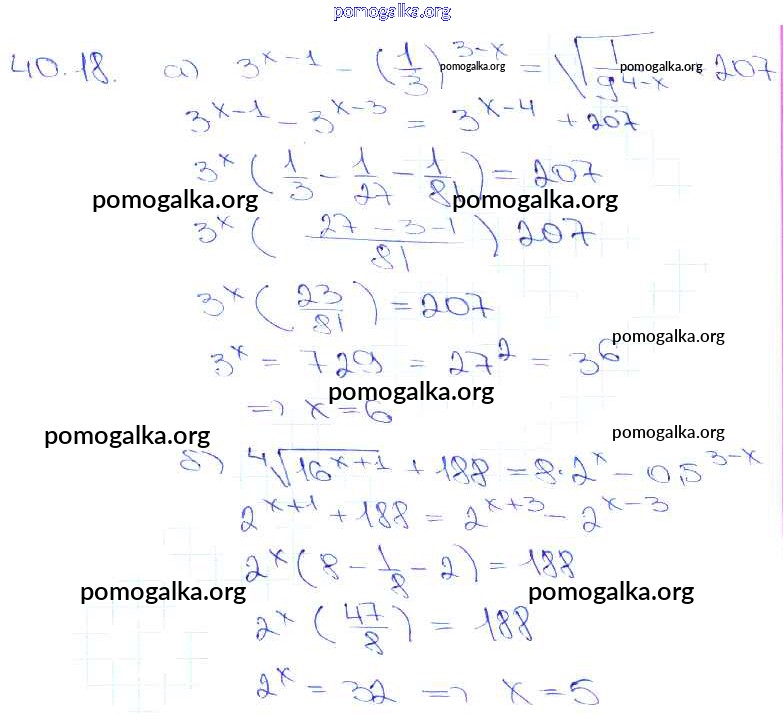 pomogalka.org
40.18. а) 3^(x-1) - (1/3)^(3-x) = √(1/9^(4-x)) + 207
pomogalka.org pomogalka.org
3^(x-1) - 3^(x-3) = 3^(x-4) + 207
3^x (1/3 - 1/27 - 1/81) = 207
pomogalka.org pomogalka.org
3^x ((27 - 3 - 1)/81) 207
3^x (23/81) = 207
pomogalka.org
3^x = 729 = 27^2 = 3^6
pomogalka.org
=> x = 6
pomogalka.org pomogalka.org
б) ⁴√(16^(x+1)) + 188 = 8·2^x - 0,5^(3-x)
2^(x+1) + 188 = 2^(x+3) - 2^(x-3)
2^x (8 - 1/8 - 2) = 188
pomogalka.org pomogalka.org
2^x (47/8) = 188
2^x = 32 => x = 5